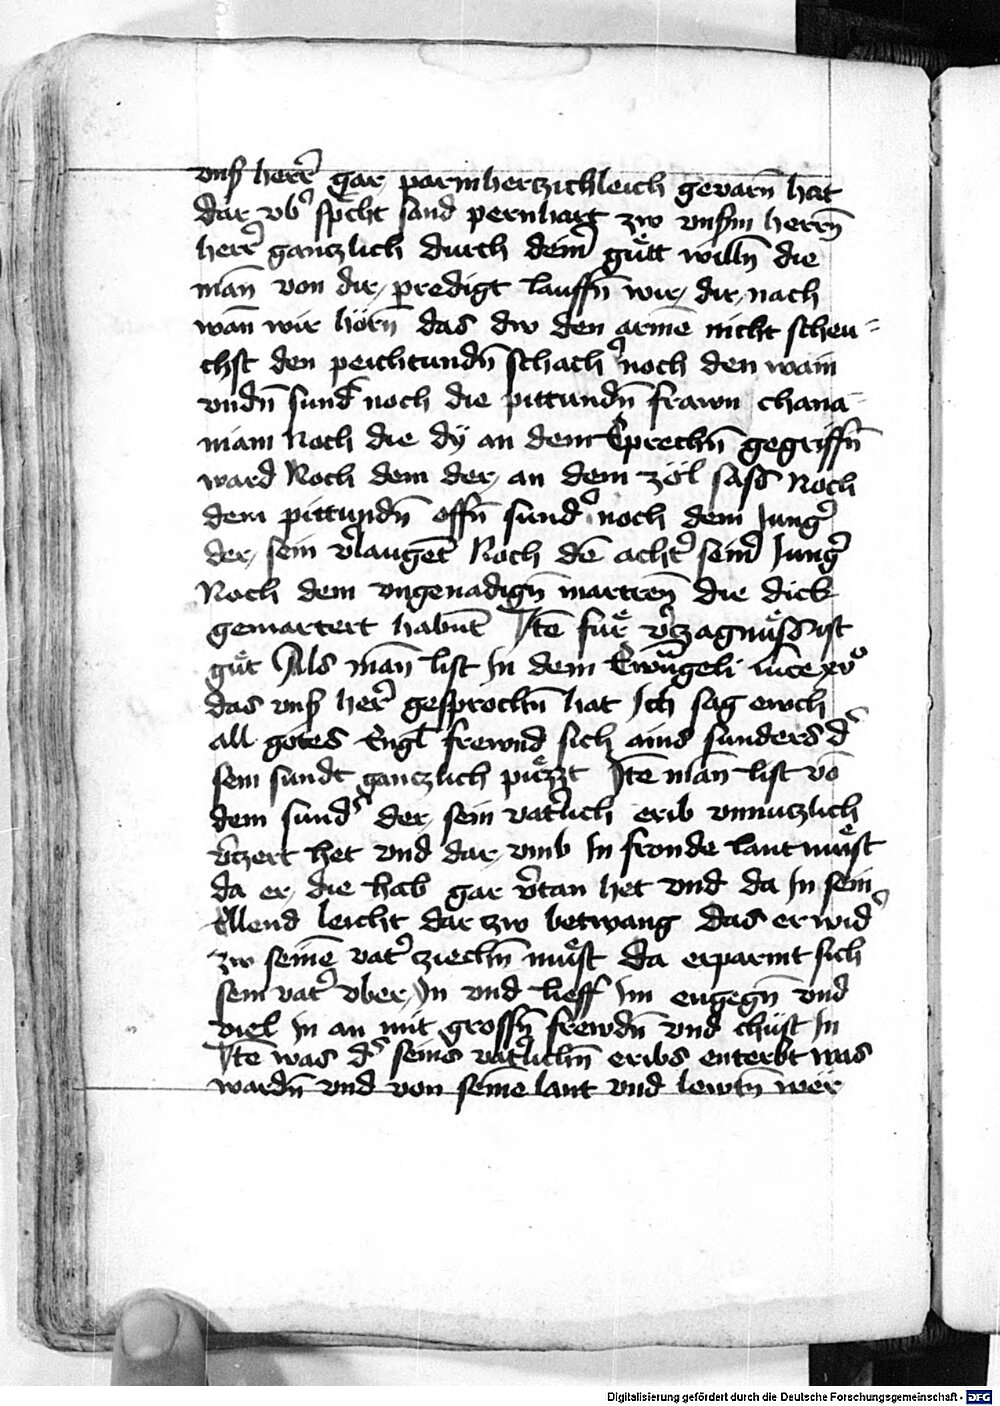 vnsß herr̄ gar parmhertzichleich gevarn̄ hat
dar vb͛ spͥcht sand pernhart zw vnßm herrn̄
herr͛ gantzlich durch dein͛ guͤtt willn̄ die
man̄ von dir predigt lauffn̄ wir dir nach
wan̄ wir hörn̄ das dw den armē nicht scheu⸗
chst den peichtundn̄ schach͛ noch den wain
vndn̄ sund͛ noch die pittundn̄ frawn chana⸗
niam Noch die dÿ an dem Eprechn̄ gegriffn̄
ward Noch dem der an dem zöl sass Noch
dem pittundn̄ offn̄ sund͛ noch dem Jung͛
der sein v͛laugēt Noch dē acht͛ sein͛ Jung͛
Noch dem vngenadign̄ martren̄ die dick
gemartert habn̄t Itē fuͤr v͛tzagnuͤss ist
guͤt Als man̄ list In dem Ewāngeli luce xvº
das vnß her͛ gesprochn̄ hat Ich sag ewch
all gotes Engl̄ frewnd sich ains sunders d͛
sein sundt gantzlich puͤzzt Itē man̄ list vō
dem sund͛ der sein vat͛lich erib vnnutzlich
v͛tzert het vnd dar vmb In fronde lant muͤst
da er die hab gar v͛tan het vnd da In sein
Ellend leicht dar zw betwang das er wid͛
zw seinē vat͛ ziechn̄ muͤst da erparmt sich
sein vat͛ vber In vnd lieff im engegn̄ vnd
viel In an mit grossn̄ frewdn̄ vnd chüst In
Itē was d͛ seins vat͛lichn̄ eribs enterbt was
wardn̄ vnd von seinē lant vnd lewtn̄ wër
Digitalisierung gefördert durch die Deutsche Forschungsgemeinschaft - DFG